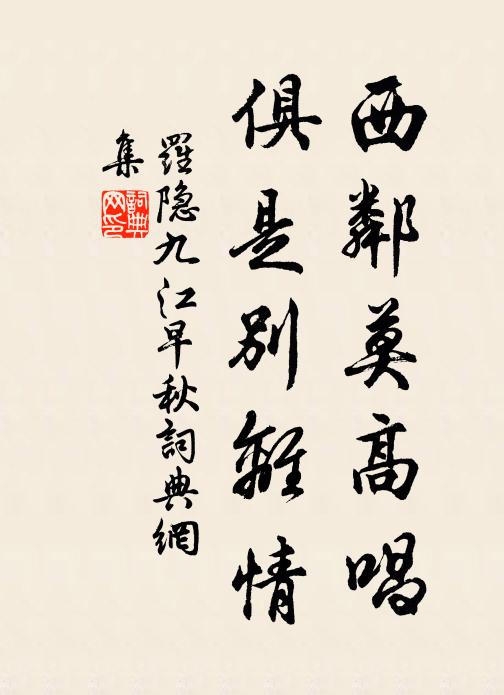 西鄰莫高唱
俱是別離情
羅隐九江早秋詞典網
集
詞典
网印